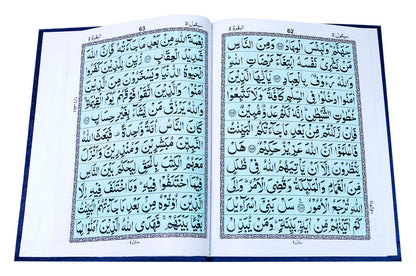 البقرة ٢
62
سيقول ٢
جَهَنَّمُ وَلَبِئْسَ الْمِهَادُ وَمِنَ النَّاسِ
مَنْ يَّشْرِيْ نَفْسَهُ ابْتِغَآءَ مَرْضَاتِ اللّٰهِ
وَاللّٰهُ رَءُوْفٌۢ بِالْعِبَادِ يٰٓاَيُّهَا الَّذِيْنَ
اٰمَنُوا ادْخُلُوْا فِي السِّلْمِ كَآفَّةً وَّلَا تَتَّبِعُوْا
خُطُوٰتِ الشَّيْطٰنِ اِنَّهٗ لَكُمْ عَدُوٌّ مُّبِيْنٌ
فَاِنْ زَلَلْتُمْ مِّنْۢ بَعْدِ مَا جَآءَتْكُمُ الْبَيِّنٰتُ
فَاعْلَمُوْٓا اَنَّ اللّٰهَ عَزِيْزٌ حَكِيْمٌ هَلْ
يَنْظُرُوْنَ اِلَّآ اَنْ يَّاْتِيَهُمُ اللّٰهُ فِيْ ظُلَلٍ
مِّنَ الْغَمَامِ وَالْمَلٰٓئِكَةُ وَقُضِيَ الْاَمْرُ وَاِلَى
اللّٰهِ تُرْجَعُ الْاُمُوْرُ سَلْ بَنِيْٓ اِسْرَآءِيْلَ
كَمْ اٰتَيْنٰهُمْ مِّنْ اٰيَةٍۢ بَيِّنَةٍ وَمَنْ يُّبَدِّلْ
البقرة ٢
63
سيقول ٢
نِعْمَةَ اللّٰهِ مِنْۢ بَعْدِ مَا جَآءَتْهُ فَاِنَّ اللّٰهَ
شَدِيْدُ الْعِقَابِ زُيِّنَ لِلَّذِيْنَ كَفَرُوا
الْحَيٰوةُ الدُّنْيَا وَيَسْخَرُوْنَ مِنَ الَّذِيْنَ
اٰمَنُوْا وَالَّذِيْنَ اتَّقَوْا فَوْقَهُمْ يَوْمَ الْقِيٰمَةِ
وَاللّٰهُ يَرْزُقُ مَنْ يَّشَآءُ بِغَيْرِ حِسَابٍ
كَانَ النَّاسُ اُمَّةً وَّاحِدَةً فَبَعَثَ اللّٰهُ
النَّبِيّٖنَ مُبَشِّرِيْنَ وَمُنْذِرِيْنَ وَاَنْزَلَ
مَعَهُمُ الْكِتٰبَ بِالْحَقِّ لِيَحْكُمَ بَيْنَ النَّاسِ
فِيْمَا اخْتَلَفُوْا فِيْهِ وَمَا اخْتَلَفَ فِيْهِ اِلَّا
الَّذِيْنَ اُوْتُوْهُ مِنْۢ بَعْدِ مَا جَآءَتْهُمُ الْبَيِّنٰتُ
بَغْيًۢا بَيْنَهُمْ فَهَدَى اللّٰهُ الَّذِيْنَ اٰمَنُوْا